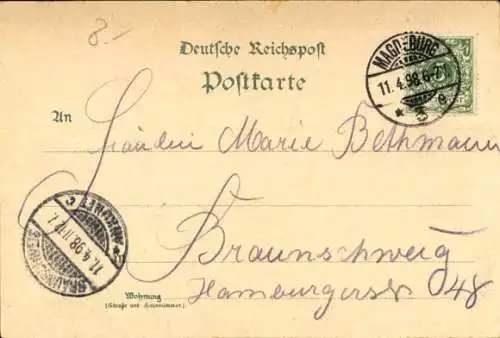 8.-
Deutsche Reichspost
Postkarte
MAGDEBURG
11.4.98.6-7
* 3 e
An
Fräulein Marie Bethmann
Braunschweig
Hamburgerstr 48
Wohnung
(Straße und Hausnummer)
BRAUNSCHWEIG
11.4.98.11-12
* ANKUNFT c